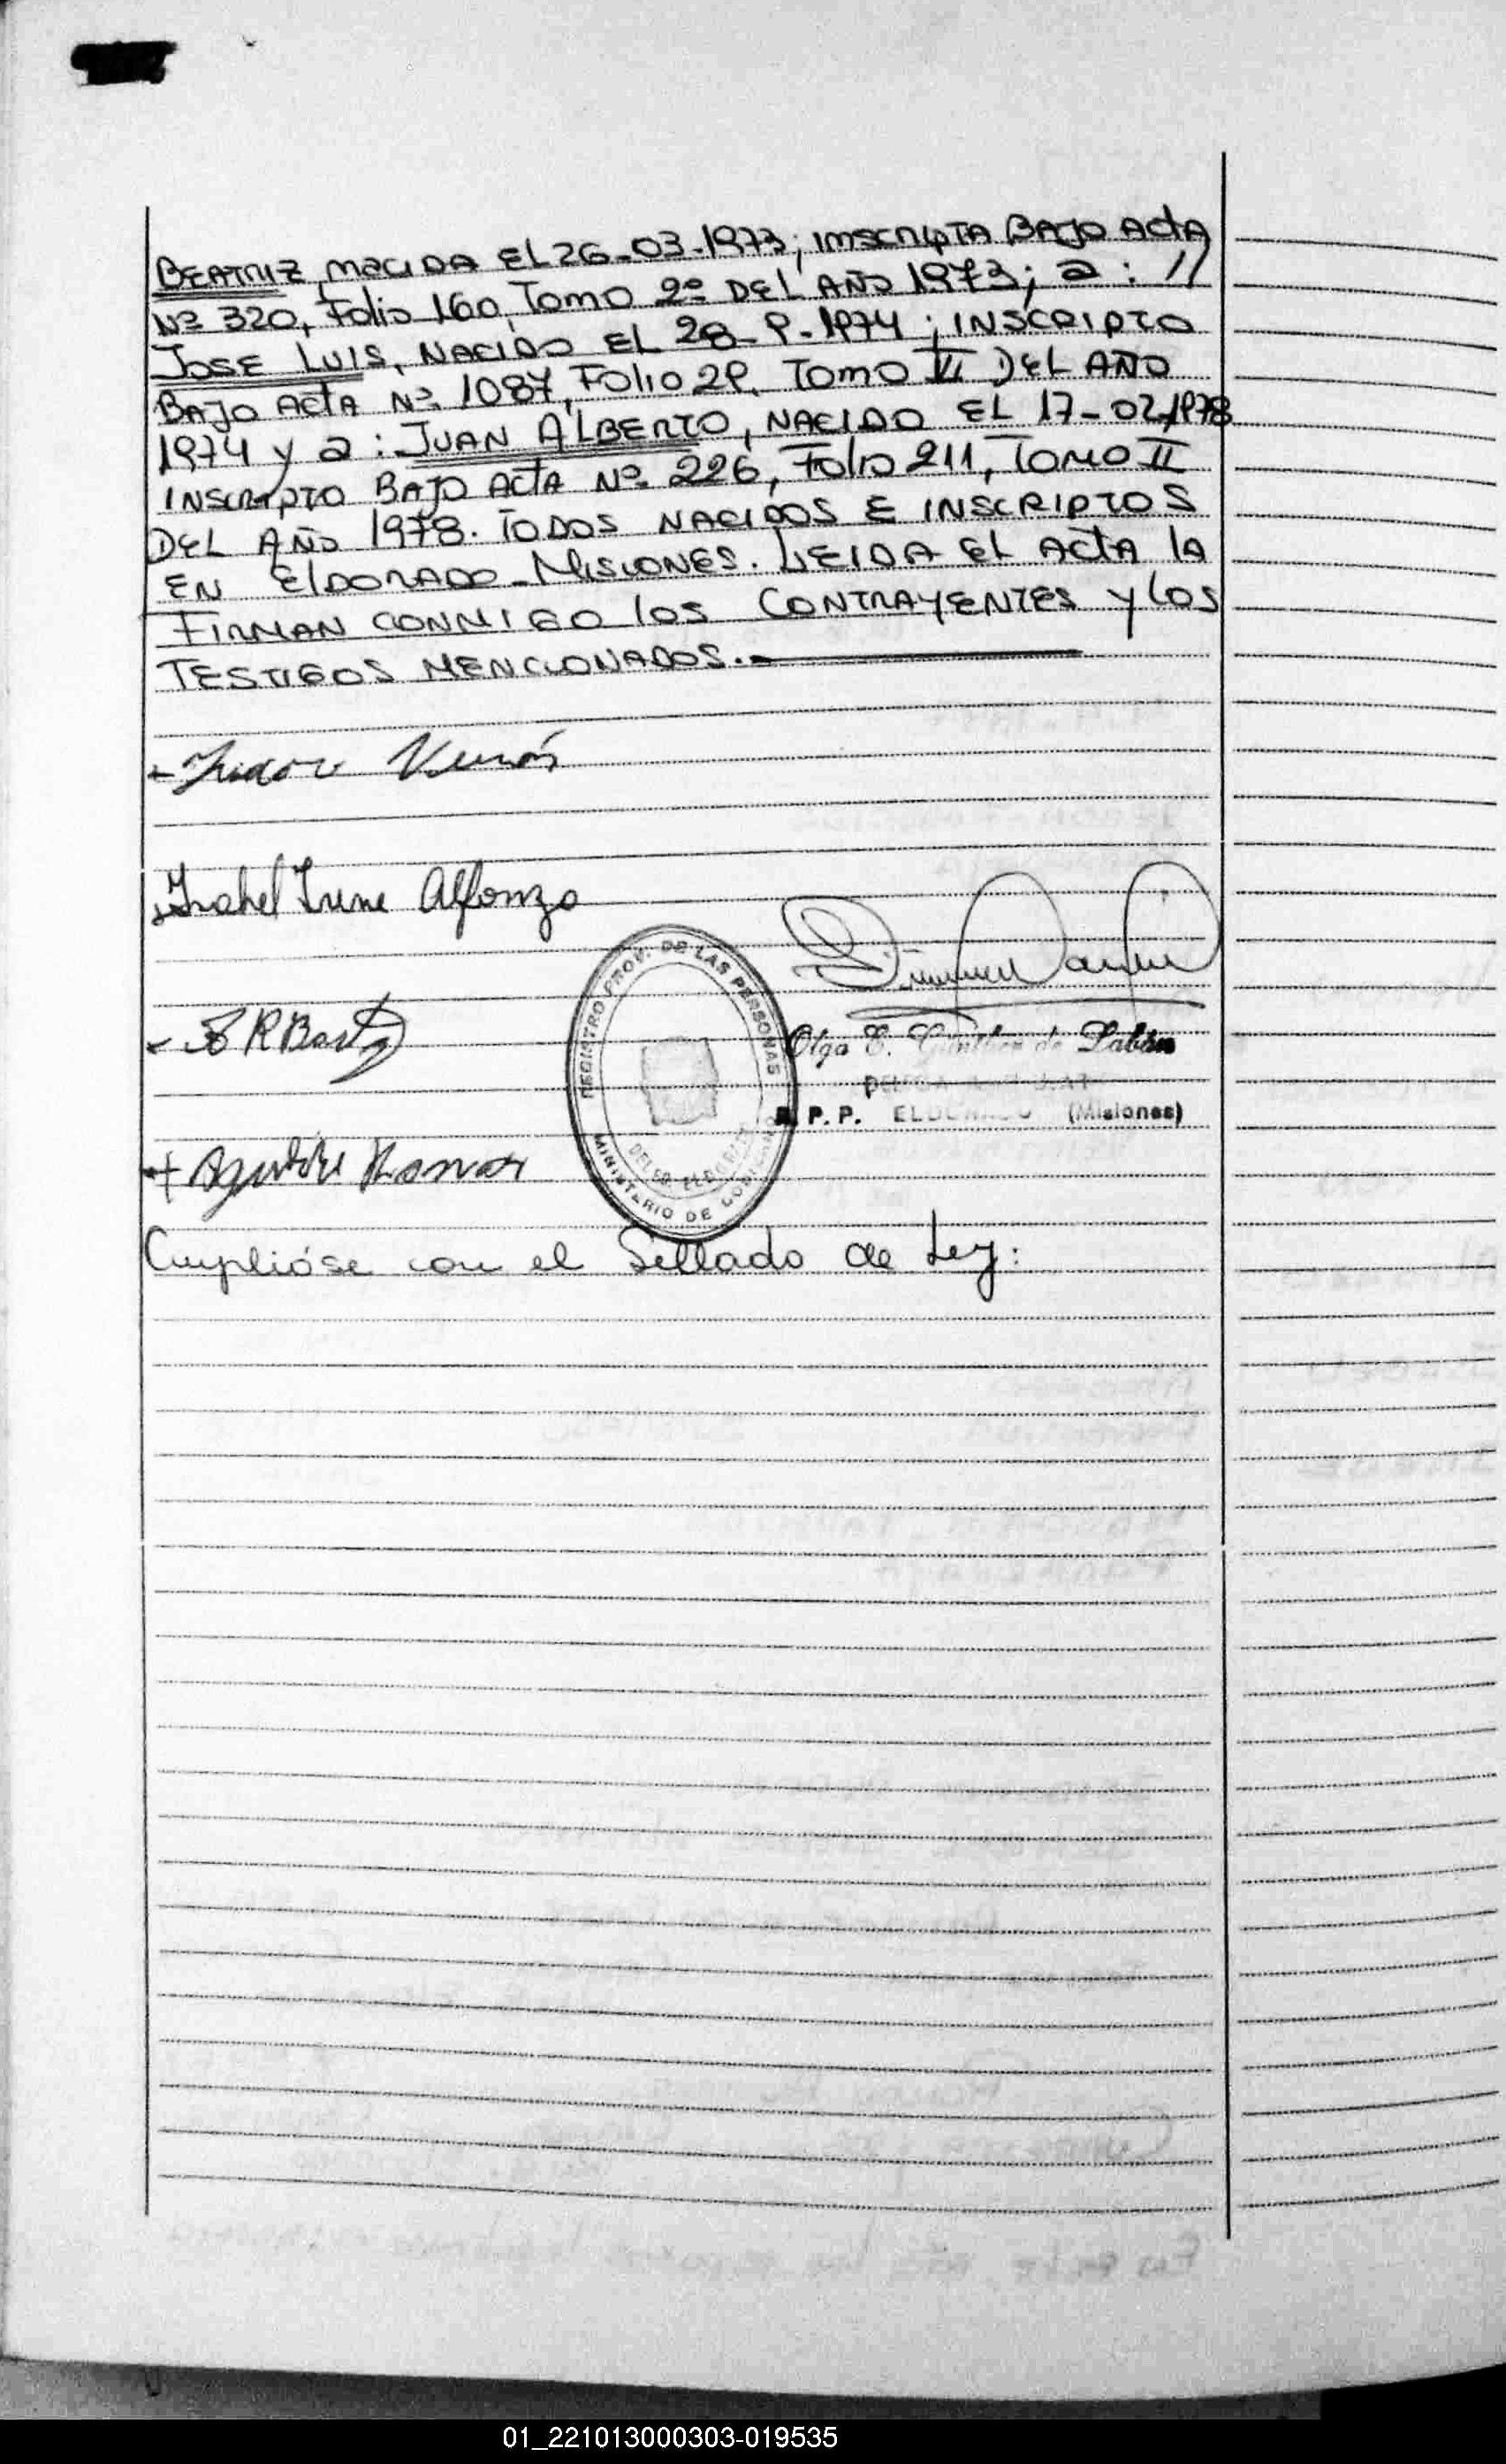 BEATRIZ, NACIDA EL 26-03-1973; INSCRIPTA BAJO ACTA
Nº 320, FOLIO 160, TOMO 2º DEL AÑO 1973; a: //
JOSE LUIS, NACIDO EL 28-9-1974; INSCRIPTO
BAJO ACTA Nº 1087, FOLIO 29, TOMO VI DEL AÑO
1974 y a: JUAN ALBERTO, NACIDO EL 17-02-1978
INSCRIPTO BAJO ACTA Nº 226, FOLIO 211, TOMO II
DEL AÑO 1978. TODOS NACIDOS E INSCRIPTOS
EN ELDORADO-MISIONES. LEIDA EL ACTA LA
FIRMAN CONMIGO LOS CONTRAYENTES Y LOS
TESTIGOS MENCIONADOS.-
Isabel Irene Alfonzo
REGISTRO PROV. DE LAS PERSONAS
MINISTERIO DE GOBIERNO
DELEG. ELDORADO
Olga E. de
R. P. P. ELDORADO (Misiones)
Ramon
Cumplióse con el Sellado de Ley:
01_221013000303-019535